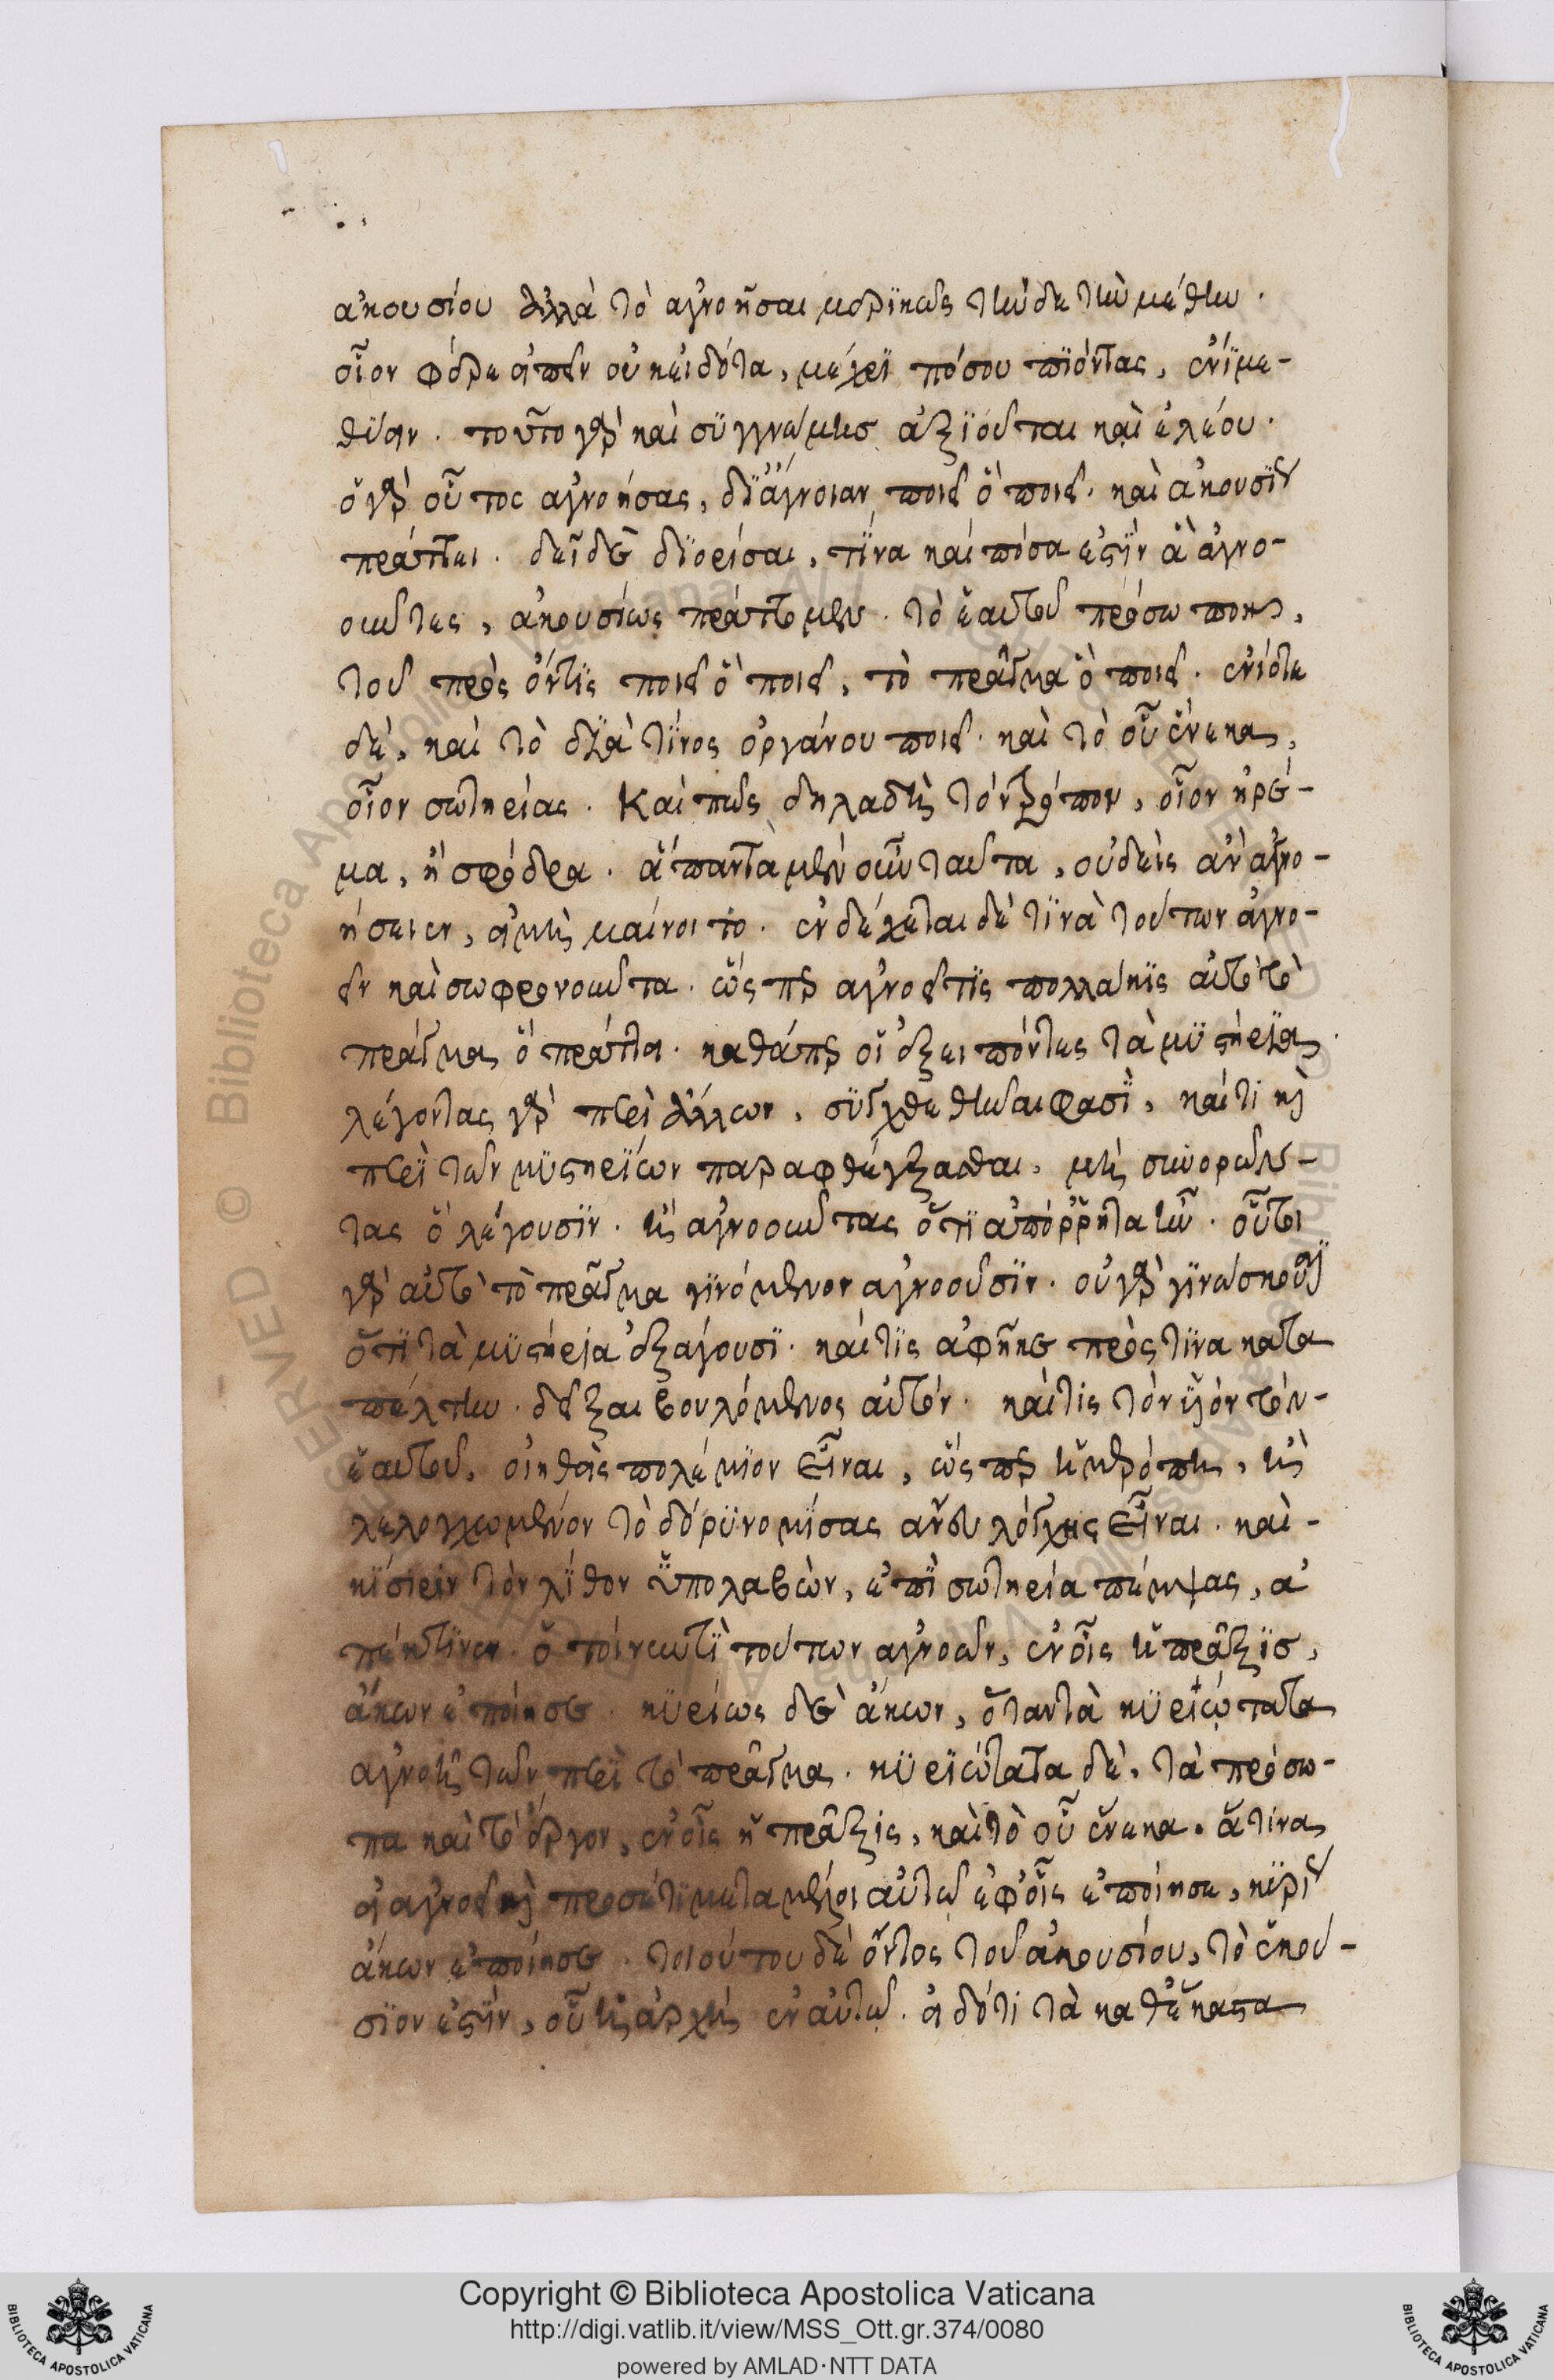 ἀκουσίου ἀλλὰ τὸ ἀγνοῆσαι μορϊκῶς τήνδε τὴν μέθην.
οἷον φέρε εἰπεῖν οὐκ εἰδότα, μέχρϊ πόσου πϊόντας, ἐνϊμε-
θϋειν. τοῦτο γὰρ καὶ συγγνώμησ ἀξϊοῦται καὶ ἐλέου.
ὁ γὰρ οὗτος ἀγνοήσας, δϊ ἄγνοιαν ποιεῖ ὃ ποιεῖ. καὶ ἀκουσϊ
πράττει. δεῖ δὲ δϊορίσαι, τίνα καὶ πόσα ἐστὶν ἃ ἀγνο-
οῦντες, ἀκουσίως πράττομεν. τὸ ἑαυτοῦ πρόσωπον,
τοῦ πρὸς ὅντϊς ποιεῖ ὃ ποιεῖ, τὸ πρᾶγμα ὃ ποιεῖ. ἐνίοτε
δέ, καὶ τὸ δϊὰ τίνος ὀργάνου ποιεῖ. καὶ τὸ οὗ ἕνεκα,
οἷον σωτηρίας. Καὶ πῶς δηλαδὴ τὸν τρόπον, οἷον ἠρέ-
μα, ἢ σφόδρα. ἅπαντα μὲν οὖν ταῦτα, οὐδεὶς ἂν ἀγνο-
ήσειεν, εἰ μὴ μαίνοιτο. ἐνδέχεται δέ τϊνὰ τούτων ἀγνο-
εῖν καὶ σωφρονοῦντα. ὥς περ ἀγνοεῖ τϊς πολλάκϊς αὐτὸ τὸ
πρᾶγμα ὃ πράττει. καθάπερ οἱ ἐξειπόντες τὰ μϋστήρϊα.
λέγοντας γὰρ περὶ ἄλλων, συγχθεθῆναι φασὶ, καί τι κὴ
περὶ τῶν μϋστηρϊων παραφθέγξασθαι, μὴ συνορῶν-
τας ὃ λέγουσϊν. ἢ ἀγνοοῦντας ὅτϊ ἀπόρρητα ἦν. οὗτοι
γὰρ αὐτὸ τὸ πρᾶγμα γϊνόμενον ἀγνοοῦσϊν. οὐ γὰρ γϊνώσκουσϊ
ὅτϊ τὰ μϋστήρια ἐξάγουσϊ. καί τϊς ἀφῆκε πρός τϊνα κατα
πέλτην. δεῖξαι βουλόμενος αὐτόν. καί τις τὸν ϋἱὸν τὸν-
ἑαυτοῦ, οἰηθεὶς πολέμϊον εἶναι, ὥς περ ἡ μερόπη, ἢ
λελογχωμένον τὸ δόρϋ νομίσας ἄνευ λόγχης εἶναι. καὶ-
κϊσιριν τὸν λϊθον ὑπολαβὼν, ἐπὶ σωτηρία πέμψας, ἀ
πέκτϊνεν. ὁ τοίνυν τϊ τούτων ἀγνοῶν, ἐν οἷς ἡ πρᾶξϊσ,
ἄκων ἐποίησε. κϋρίως δὲ ἄκων, ὅταν τὰ κϋριώτατα
ἀγνοῆ τῶν περὶ τὸ πρᾶγμα. κϋρϊώτατα δέ, τὰ πρόσω-
πα καὶ τὸ ἔργον, ἐν οἷς ἡ πρᾶξις, καὶ τὸ οὗ ἕνεκα. ἅ τινα
εἰ ἀγνοεῖ κὴ προσέτϊ μεταμέλοι αὐτῶ ἐφ' οἷς ἐποίησε, κϋρϊ
ἄκων ἐποίησε. τοιούτου δὲ ὄντος τοῦ ἀκουσίου, τὸ ἑκού-
σϊον ἐστϊν, οὗ ἡ ἀρχὴ ἐν αὐτῶ. εἰδότι τὰ καθ' ἕκαστα
Copyright © Biblioteca Apostolica Vaticana
http://digi.vatlib.it/view/MSS_Ott.gr.374/0080
powered by AMLAD·NTT DATA